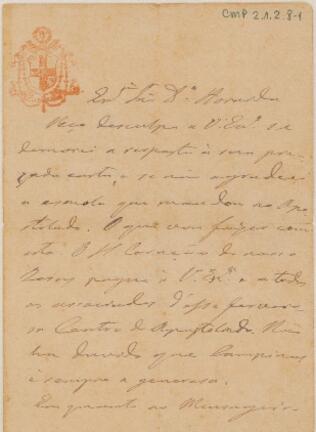 CMP 2.1.2.8-1
Peço desculpa a V. Exª. se
demorei a resposta á sua pre-
zada carta, e se não agradeci
a esmola que mandou ao Apos-
tolado. O que vou fazer com
esta. O S. Coração de nosso
Jesus pague a V. Exª. e a todos
os associados d'esse fervoro-
so Centro do Apostolado. Não
ha duvida que Campinas
é sempre a generosa.
Em quanto ao Mensageiro